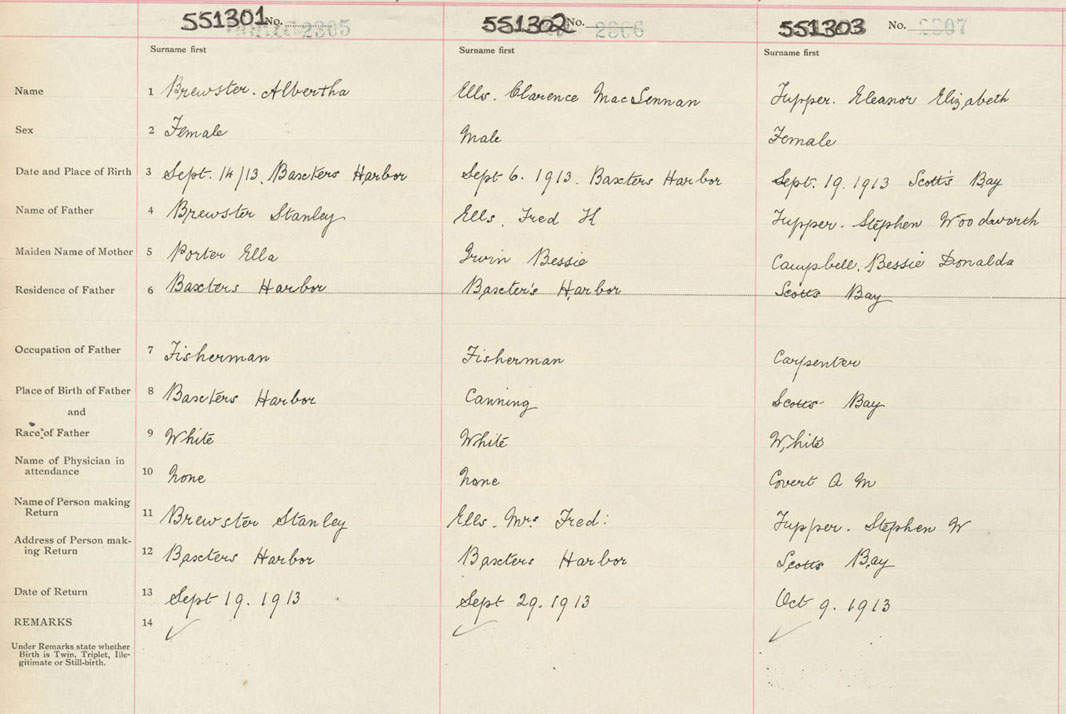 551301 No. 2305 551302 No. 2306 551303 No. 2307
Surname first Surname first Surname first
Name 1 Brewster. Albertha Ells. Clarence MacLennan Tupper. Eleanor Elizabeth
Sex 2 Female Male Female
Date and Place of Birth 3 Sept. 14/13. Baxters Harbor Sept 6. 1913. Baxters Harbor Sept. 19. 1913 Scott's Bay
Name of Father 4 Brewster Stanley Ells. Fred K Tupper. Stephen Woodworth
Maiden Name of Mother 5 Porter Ella Irvin Bessie Campbell. Bessie Donalda
Residence of Father 6 Baxters Harbor Baxter's Harbor Scotts Bay
Occupation of Father 7 Fisherman Fisherman Carpenter
Place of Birth of Father 8 Baxters Harbor Canning Scotts Bay
and
Race of Father 9 White White White
Name of Physician in
attendance 10 None None Covert A M
Name of Person making
Return 11 Brewster Stanley Ells. Mrs Fred: Tupper. Stephen W
Address of Person mak-
ing Return 12 Baxters Harbor Baxters Harbor Scotts Bay
Date of Return 13 Sept 19. 1913 Sept 29. 1913 Oct 9. 1913
REMARKS 14
Under Remarks state whether
Birth is Twin, Triplet, Ille-
gitimate or Still-birth.